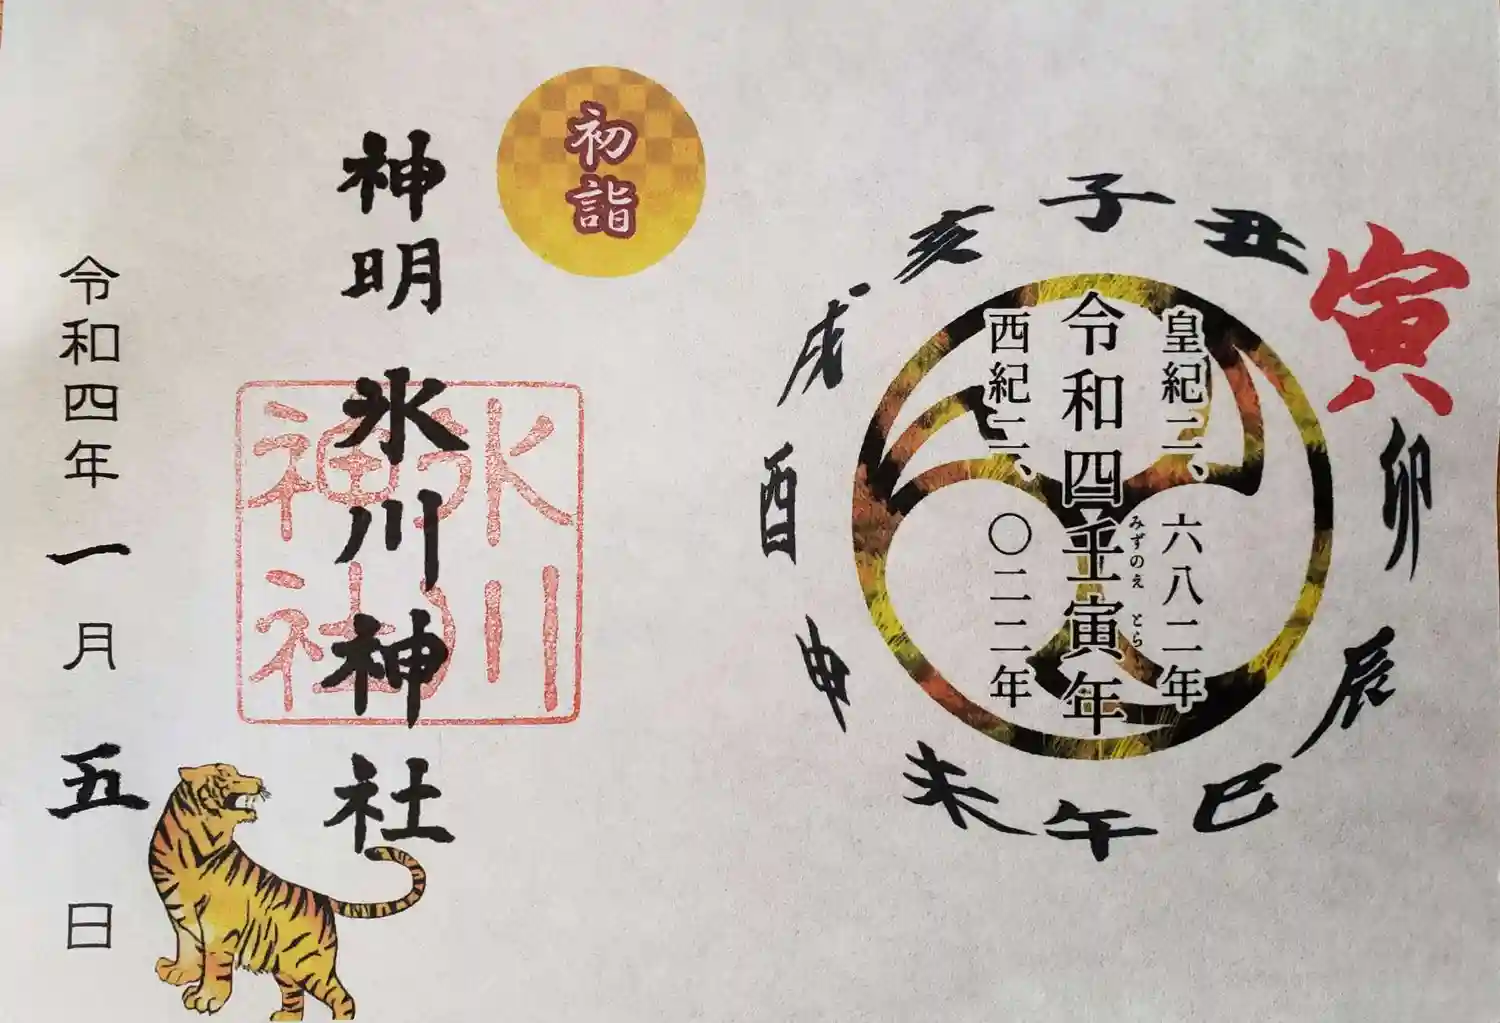 子
丑
寅
卯
辰
巳
午
未
申
酉
戌
亥
皇紀二、六八二年
令和四壬寅年
みずのえ とら
西紀二、〇二二年
初詣
神明 氷川神社
氷川
神社
令和四年一月五日